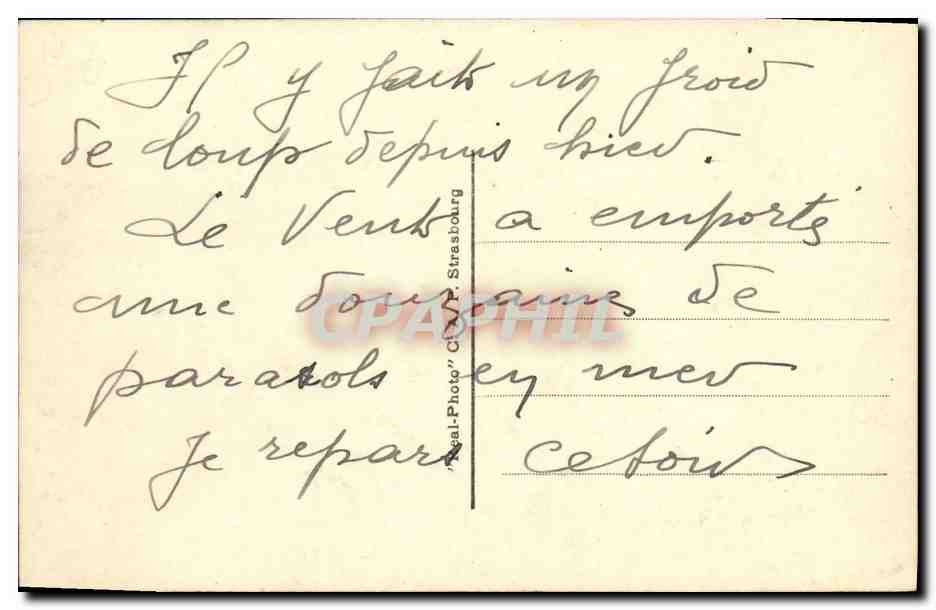 Il y fait un froid
de loup depuis hier.
Le Vent a emporté
une douzaine de
parasols en mer
Je repars ce soir
"Real-Photo" C. A. P. Strasbourg
CPAPHIL